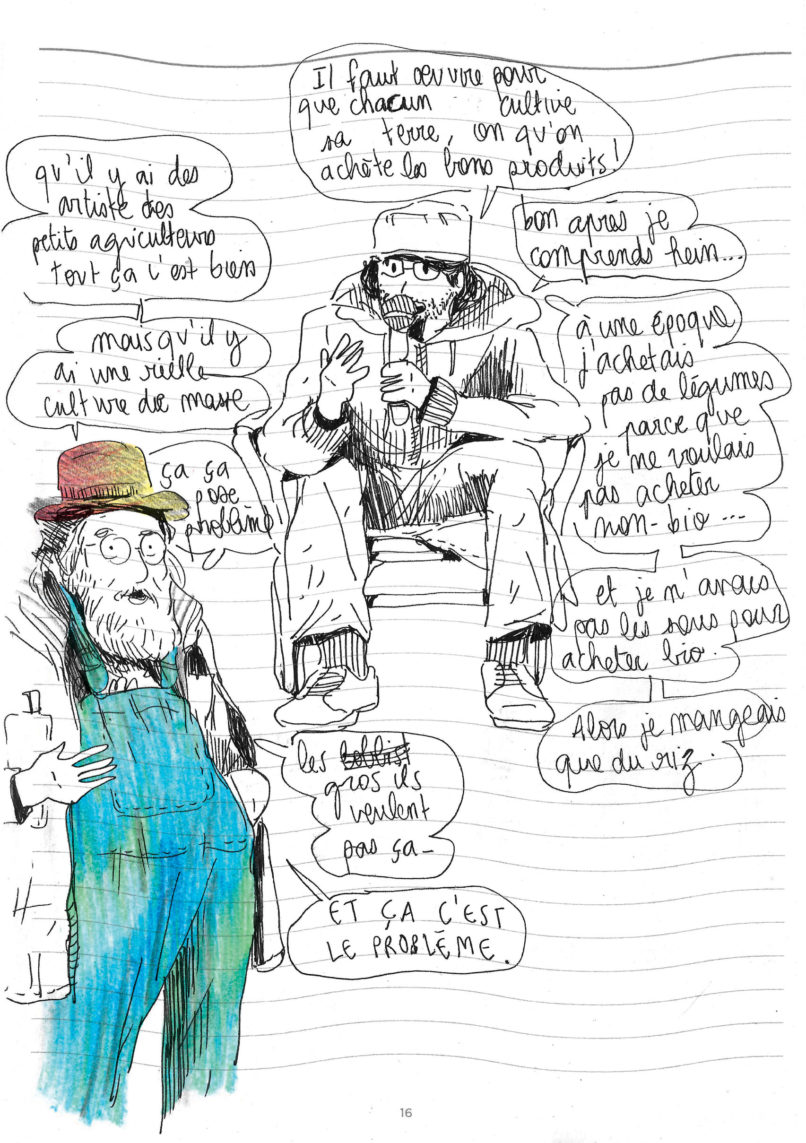 Il faut œuvre pour
que chacun cultive
sa terre, on qu'on
achète les bons produits!
bon après je
comprends hein...
à une époque
j'achetais
pas de légumes
parce que
je ne voulais
pas acheter
non-bio ...
et je n'avais
pas les sous pour
acheter bio.
Alors je mangeais
que du riz.
qu'il y ai des
artiste des
petits agriculteurs
tout ça c'est bien
mais qu'il y
ai une rielle
culture de masse
ça ça
pose
problème!
les
gros ils
veulent
pas ça_
ET ÇA C'EST
LE PROBLÈME.
16